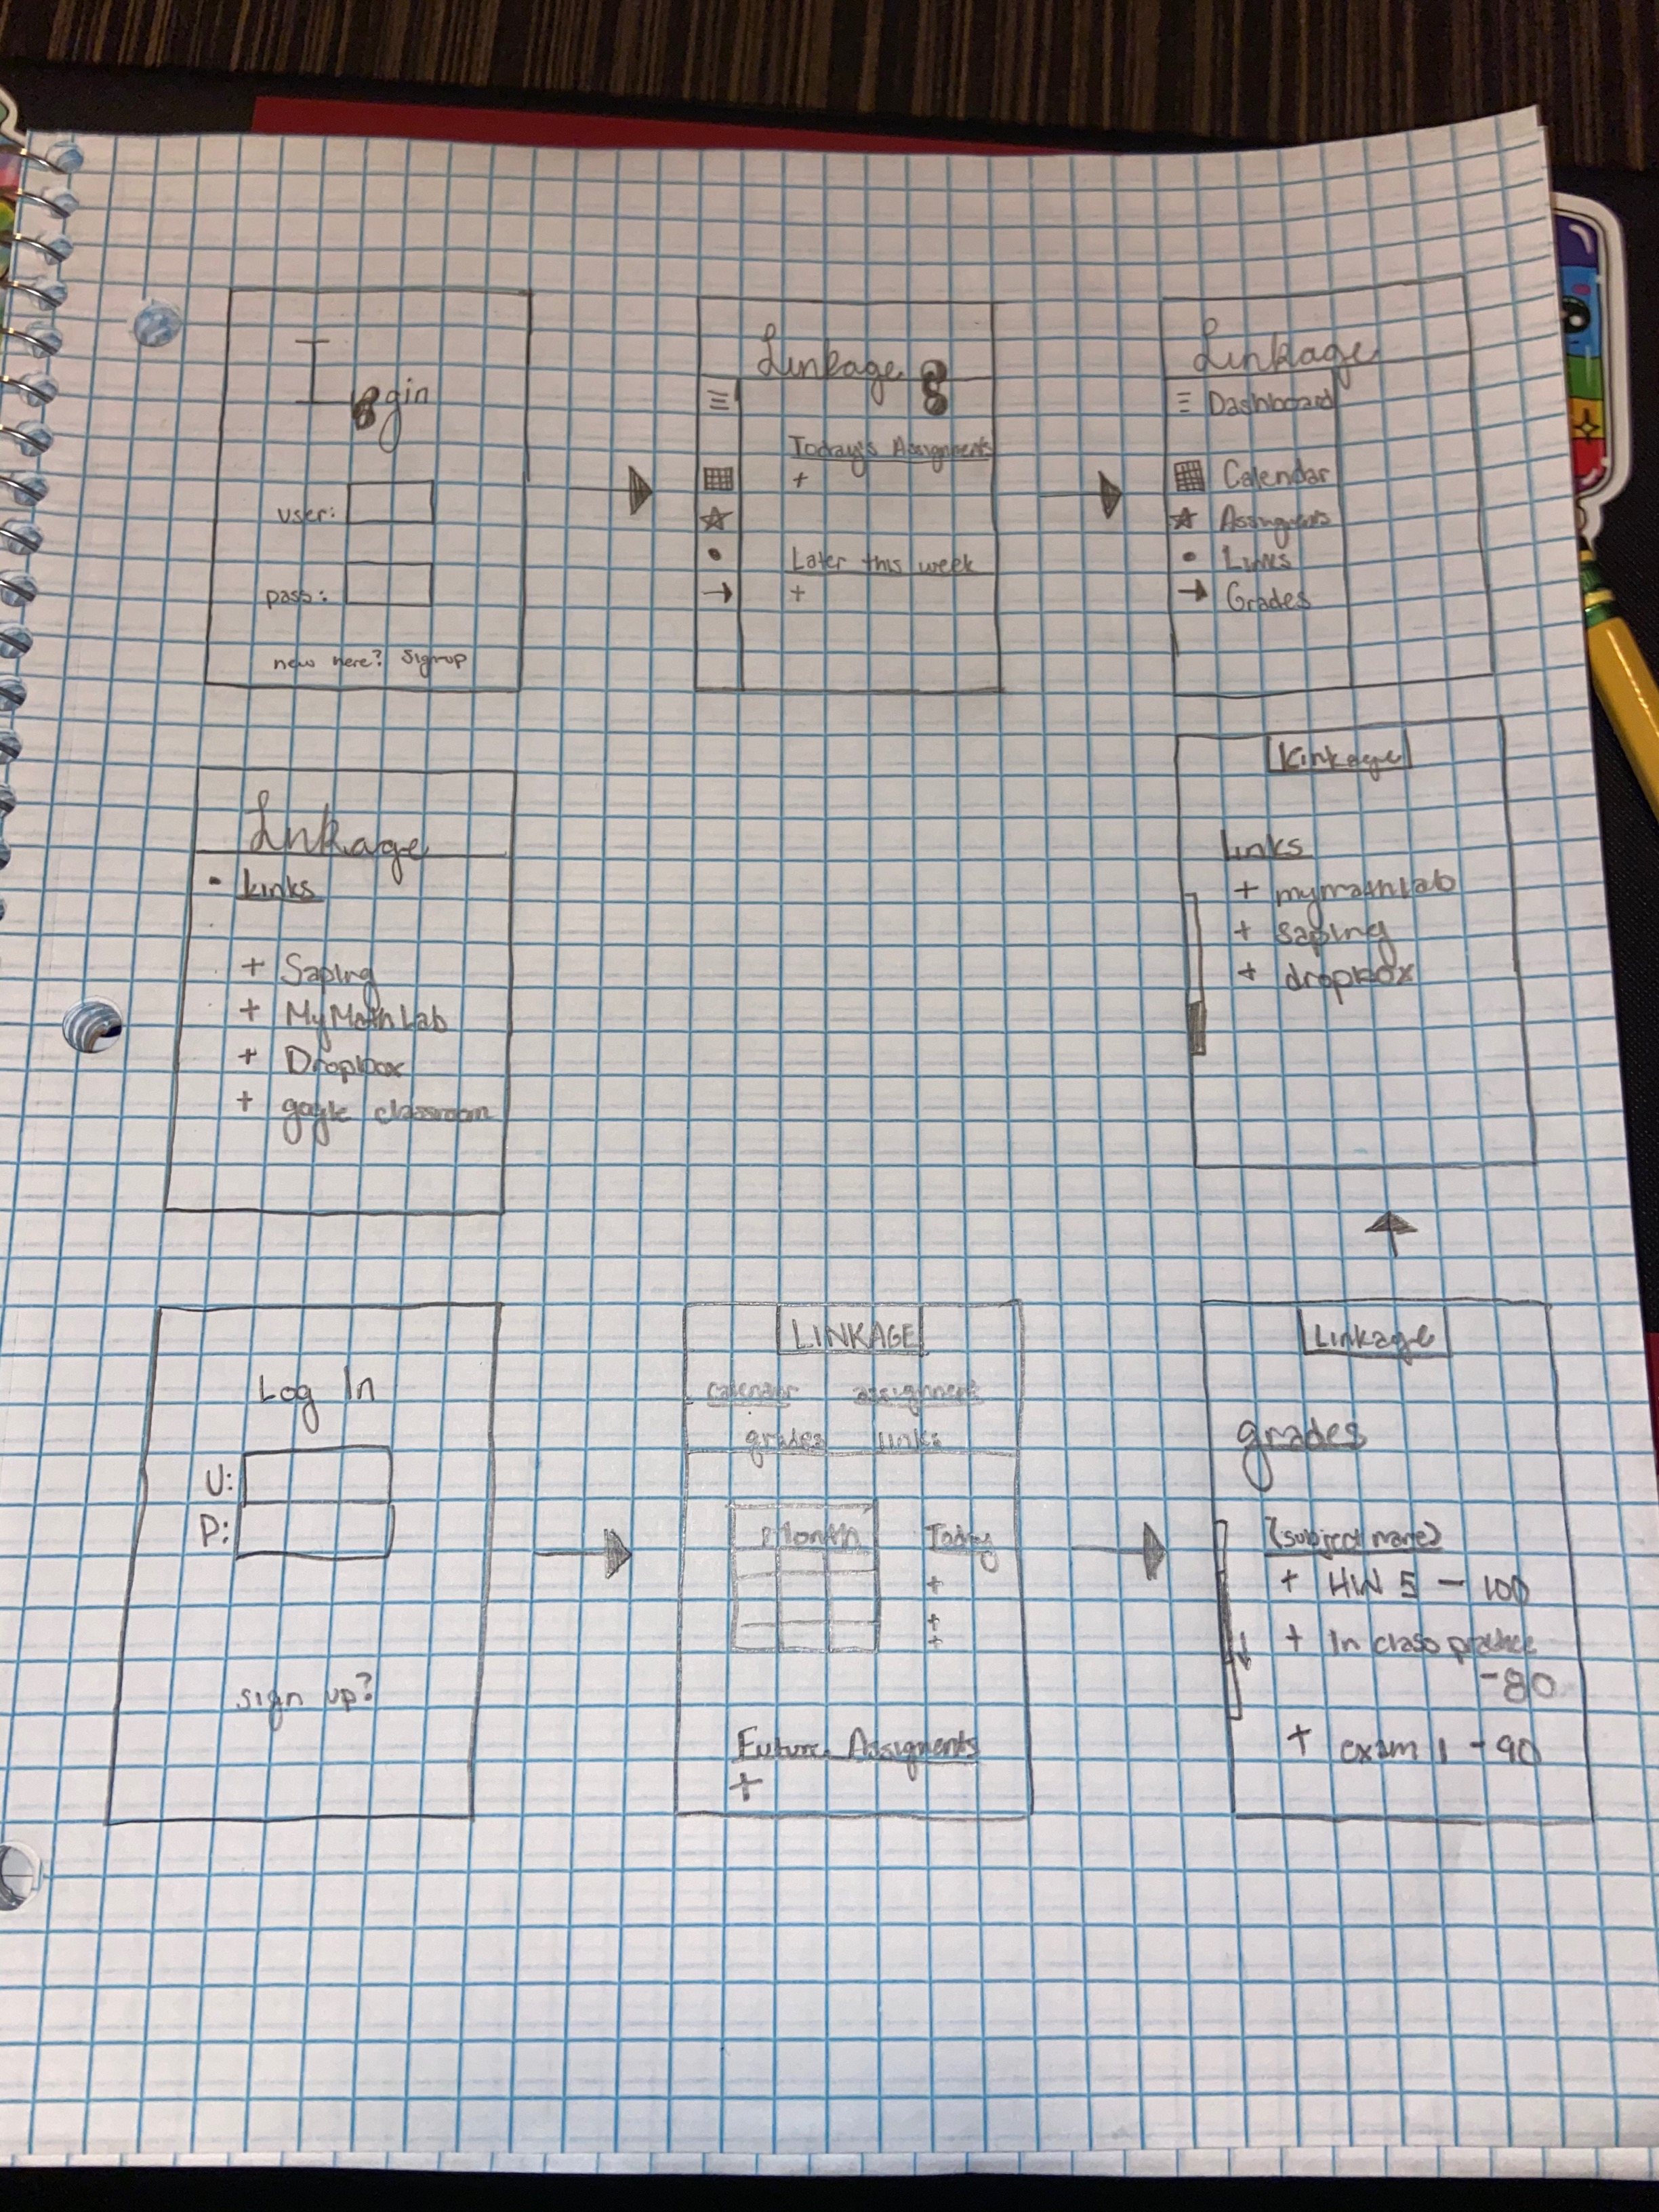 Login
user:
pass:
new here? Signup
Linkage
Today's Assignments
+
Later this week
+
Linkage
Dashboard
Calendar
Assignments
• Links
→ Grades
Linkage
• Links
+ Sapling
+ MyMathLab
+ Dropbox
+ google classroom
Linkage
Links
+ mymathlab
+ sapling
+ dropbox
Log In
U:
P:
sign up?
LINKAGE
calendar assignment
grades links
Month
Today
+
+
+
Future Assigments
+
Linkage
grades
(subject name)
+ HW 5 - 100
+ In class practice
- 80
+ exam 1 - 90